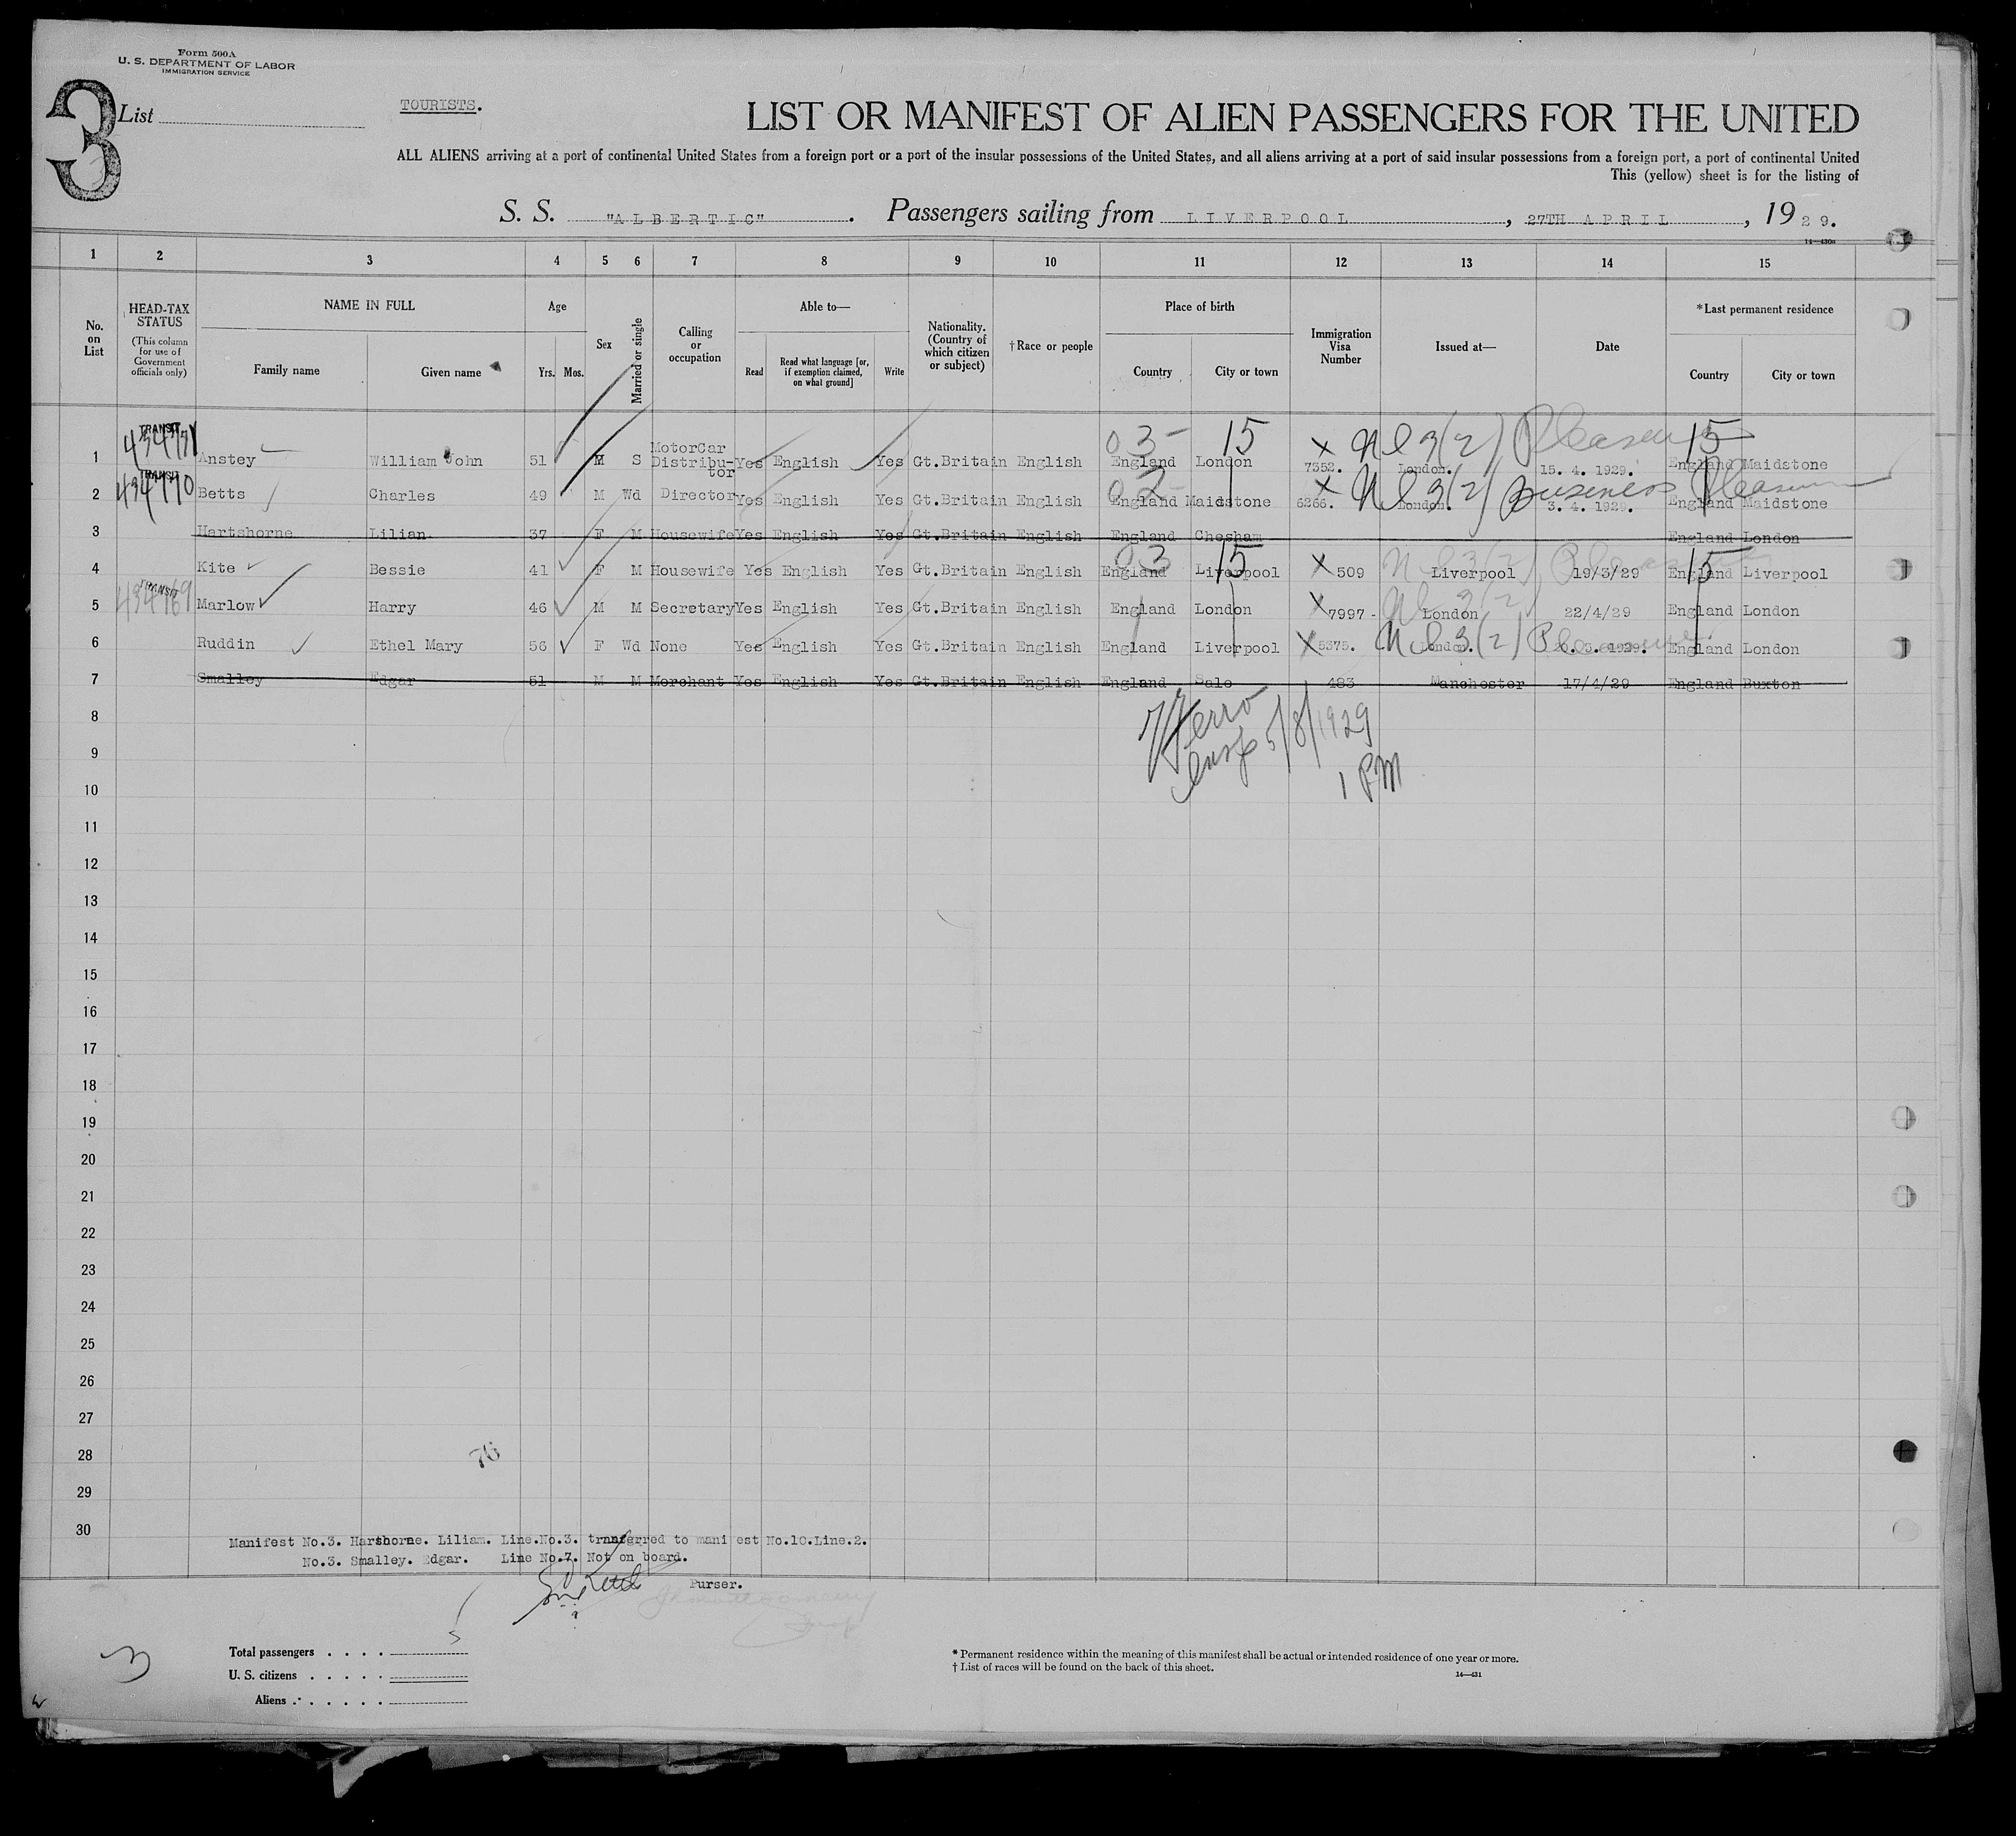 Form 500A
U. S. DEPARTMENT OF LABOR
IMMIGRATION SERVICE
3
List
TOURISTS.
LIST OR MANIFEST OF ALIEN PASSENGERS FOR THE UNITED
ALL ALIENS arriving at a port of continental United States from a foreign port or a port of the insular possessions of the United States, and all aliens arriving at a port of said insular possessions from a foreign port, a port of continental United
This (yellow) sheet is for the listing of
S. S. "ALBERTIC". Passengers sailing from LIVERPOOL, 27TH APRIL, 1929.
14—430a
1 2 3 4 5 6 7 8 9 10 11 12 13 14 15
No. on List
HEAD-TAX STATUS (This column for use of Government officials only)
NAME IN FULL
Family name Given name
Age
Yrs. Mos.
Sex
Married or single
Calling or occupation
Able to—
Read
Read what language [or, if exemption claimed, on what ground]
Write
Nationality. (Country of which citizen or subject)
†Race or people
Place of birth
Country City or town
Immigration Visa Number
Issued at—
Date
*Last permanent residence
Country City or town
TRANSIT 03 15 X Nl 3(2) Pleasure 15
1 Anstey William John 51 M S MotorCar Distributor Yes English Yes Gt.Britain English England London 7352. London. 15. 4. 1929. England Maidstone
TRANSIT X Nl 3(2) Business Pleasure
2 Betts Charles 49 M Wd Director Yes English Yes Gt.Britain English England Maidstone 6266. London. 3. 4. 1929. England Maidstone
3 Hartshorne Lilian 37 F M Housewife Yes English Yes Gt.Britain English England Chesham England London
03 15 X Nl 3(2) 15
4 Kite Bessie 41 F M Housewife Yes English Yes Gt.Britain English England Liverpool 509 Liverpool 19/3/29 England Liverpool
TRANSIT X Nl 3(2)
5 Marlow Harry 46 M M Secretary Yes English Yes Gt.Britain English England London 7997 - London 22/4/29 England London
6 Ruddin Ethel Mary 56 F Wd None Yes English Yes Gt.Britain English England Liverpool X 5375. London. Nl 3(2) Pleasure England London
7 Smalley Edgar 51 M M Merchant Yes English Yes Gt.Britain English England Sale 483 Manchester 17/4/29 England Buxton
5/8/1929
1 PM
8
9
10
11
12
13
14
15
16
17
18
19
20
21
22
23
24
25
26
27
28
76
29
30
Manifest No.3. Harthorne. Liliam. Line.No.3. trnnferred to mani est No.10.Line.2.
No.3. Smalley. Edgar. Line No.7. Not on board.
Purser.
3
Total passengers . . . . 5
U. S. citizens . . . . .
Aliens . . . . . .
* Permanent residence within the meaning of this manifest shall be actual or intended residence of one year or more.
† List of races will be found on the back of this sheet.
14—431